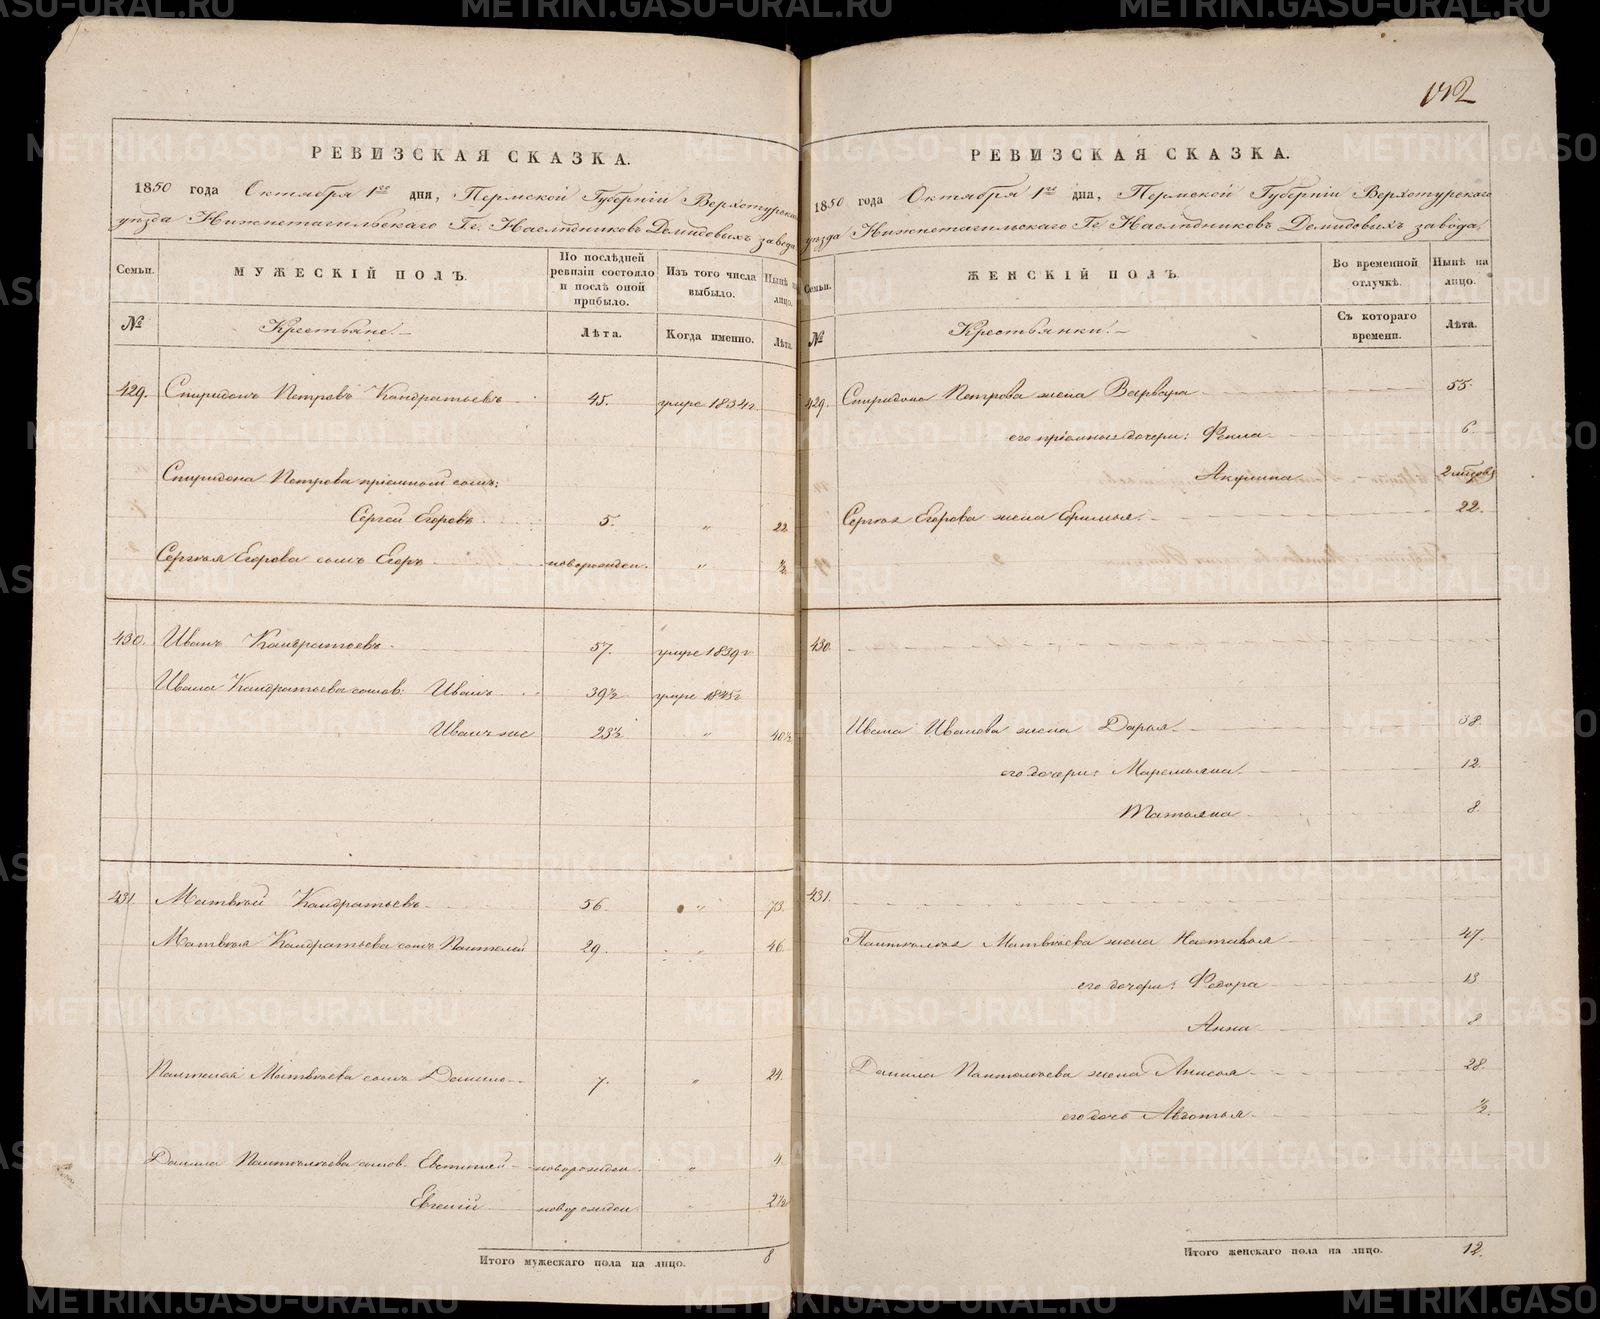 142
РЕВИЗСКАЯ СКАЗКА.
1850 года Октября 1го дня, Пермской Губерніи Верхотурскаго
уѣзда Нижнетагильскаго Гг. Наслѣдниковъ Демидовыхъ завода
Семьи. МУЖЕСКІЙ ПОЛЪ. По послѣдней ревизіи состояло и послѣ оной прибыло. Изъ того числа выбыло. Нынѣ на лицо.
№ Крестьяне. Лѣта. Когда именно. Лѣта.
429. Спиридонъ Петровъ Кандратьевъ 45. умре 1834г.
Спиридона Петрова пріемный сынъ:
Сергей Егоровъ 5. " 22
Сергѣя Егорова сынъ Егоръ новорожден. " ½
430. Иванъ Кандратьевъ 57. умре 1839г
Ивана Кандратьева сынов: Иванъ 39½ умре 1845г
Иванъ же 23½ " 40½
431. Матвѣй Кандратьевъ 56. " 73.
Матвѣя Кандратьева сынъ Пантелей 29. " 46.
Пантелея Матвѣева сынъ Данило 7. " 24.
Данила Пантелѣева сынов. Евстигней новорожден. " 4
Евгеній новорожден " 2½
Итого мужескаго пола на лицо. 8
РЕВИЗСКАЯ СКАЗКА.
1850 года Октября 1го дня, Пермской Губерніи Верхотурскаго
уѣзда Нижнетагильскаго Гг Наслѣдниковъ Демидовыхъ завода.
Семьи. ЖЕНСКІЙ ПОЛЪ. Во временной отлучкѣ. Нынѣ на лицо.
№ Крестьянки. Съ котораго времени. Лѣта.
429. Спиридона Петрова жена Варвара 55.
его пріемныя дочери: Фекла 6.
Акулина 2 мѣсяцовъ
Сергѣя Егорова жена Ефимья 22.
430.
Ивана Иванова жена Дарья 38.
его дочери: Маремьяна 12.
Татьяна 8.
431.
Пантелѣя Матвѣева жена Наталья 47.
его дочери: Федора 13
Анна 8
Данила Пантелѣева жена Анисья 28.
его дочь Авдотья ½.
Итого женскаго пола на лицо. 12.
METRIKI.GASO-URAL.RU